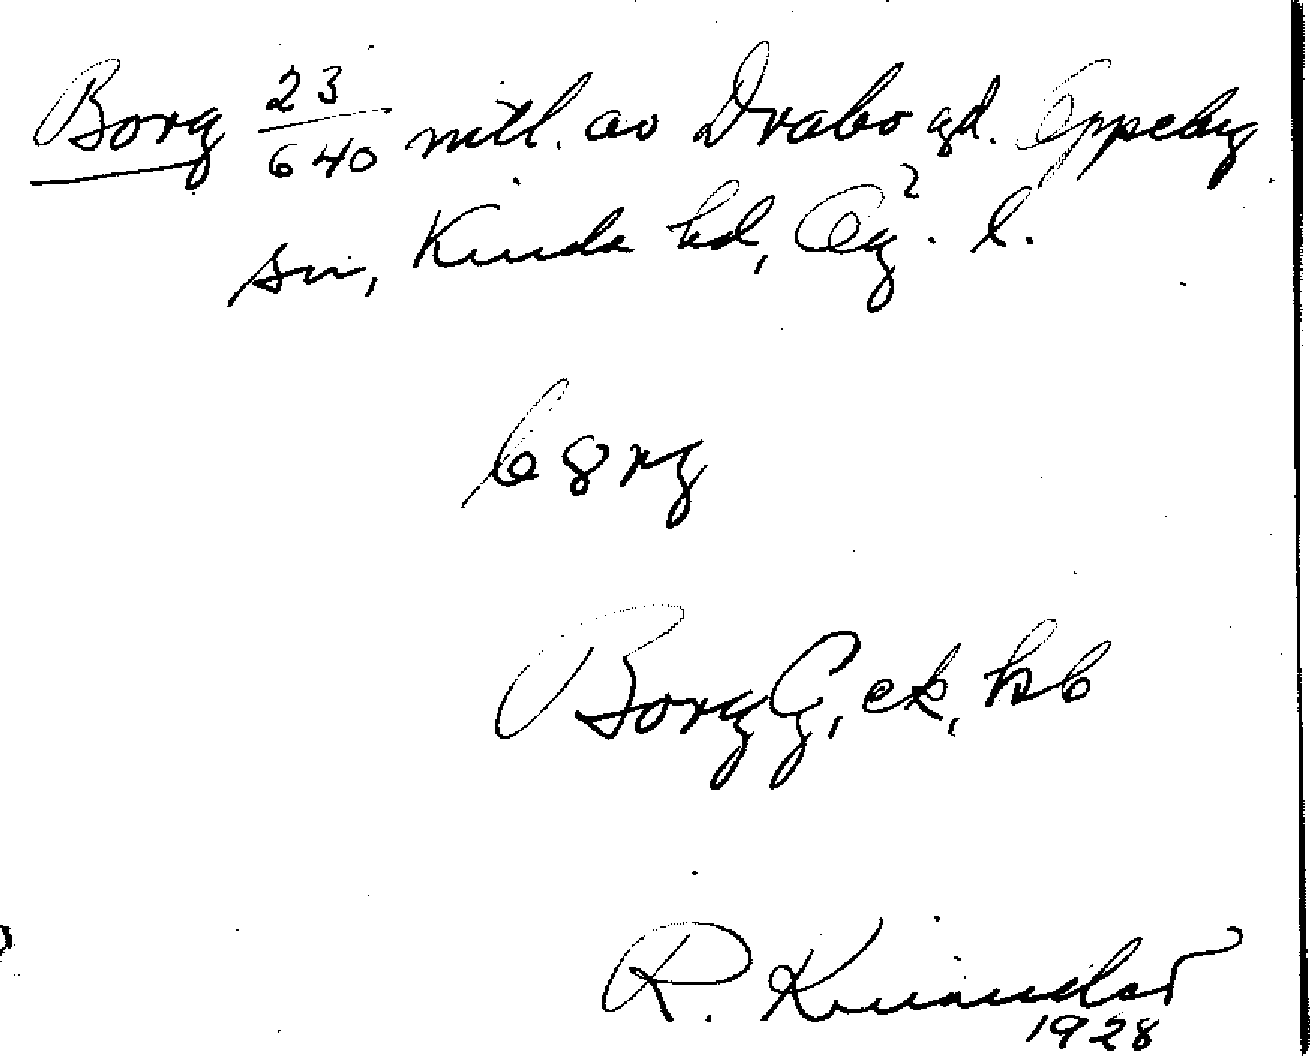 Borg 23/640 mtl. av Drabo gd. Oppeby
sn, Kinda hd, Ög. l.
b8rg
Borg Gg, ek, hb
R. Kinander
1928